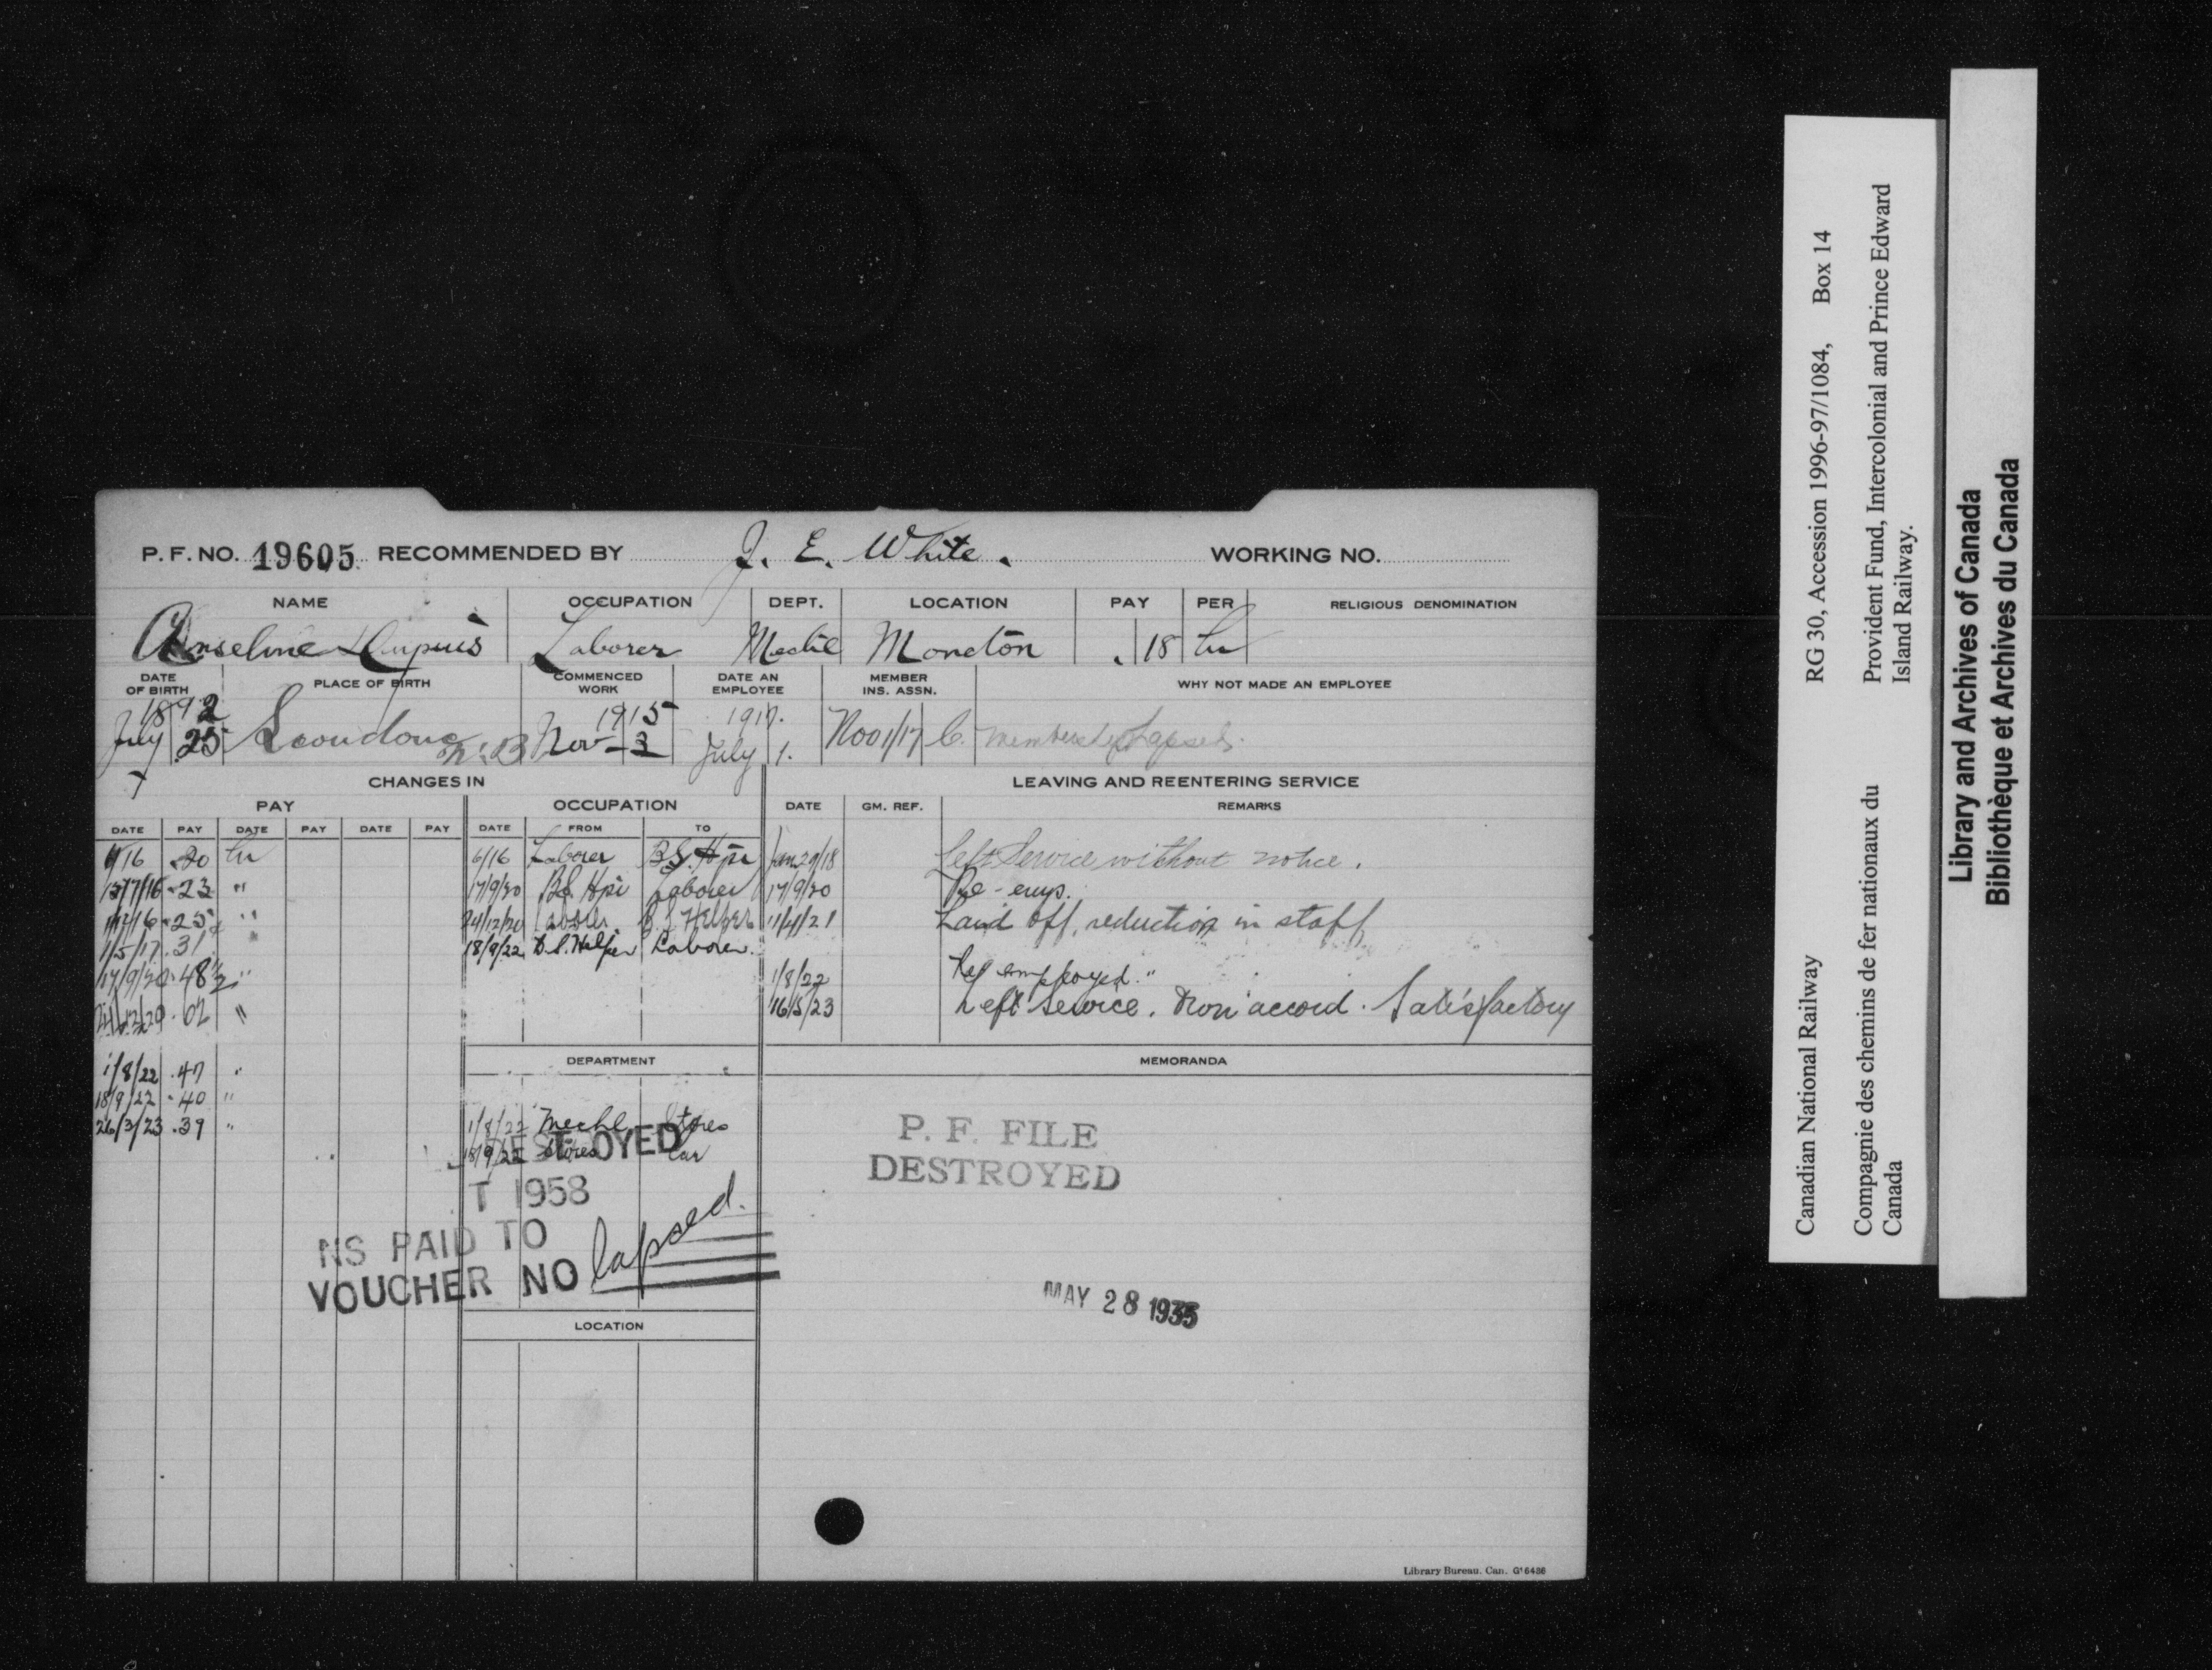 P. F. NO. 19605 RECOMMENDED BY J. E. White. WORKING NO.
NAME OCCUPATION DEPT. LOCATION PAY PER RELIGIOUS DENOMINATION
Anseline Dupuis Laborer Mechl Moncton .18 hr
DATE OF BIRTH PLACE OF BIRTH COMMENCED WORK DATE AN EMPLOYEE MEMBER INS. ASSN. WHY NOT MADE AN EMPLOYEE
1892 1915 1917.
July 25 Scoudouc N.B Nov 3 July 1. Nov 1/17 C. Membership Lapsed.
CHANGES IN LEAVING AND REENTERING SERVICE
PAY OCCUPATION DATE GM. REF. REMARKS
DATE PAY DATE PAY DATE PAY DATE FROM TO
6/16 .20 hr 6/16 Laborer B.S. Hpr Jan 29/18 Left Service without notice.
.23 " 17/9/20 B.S. Hpr Laborer 17/9/20 Re-emp.
24/12/20 Laborer B.S Helper 11/4/21 Laid off, reduction in staff
1/5/17 .31 18/9/22 B.S. Helper Laborer.
17/9/20 .48½ " 1/8/22 Re employed."
24/12/20 " 16/5/23 Left Service. Own accord. Satisfactory
DEPARTMENT MEMORANDA
1/8/22 .47 "
18/9/22 .40 "
26/3/23 .39 " 1/8/22 Mechl Stores
18/9/22 Stores Car
DESTROYED
T 1958
NS PAID TO
VOUCHER NO lapsed.
P. F. FILE
DESTROYED
MAY 28 1935
LOCATION
Library Bureau. Can. G16436
Canadian National Railway RG 30, Accession 1996-97/1084, Box 14
Compagnie des chemins de fer nationaux du Canada
Provident Fund, Intercolonial and Prince Edward Island Railway.
Library and Archives of Canada
Bibliothèque et Archives du Canada